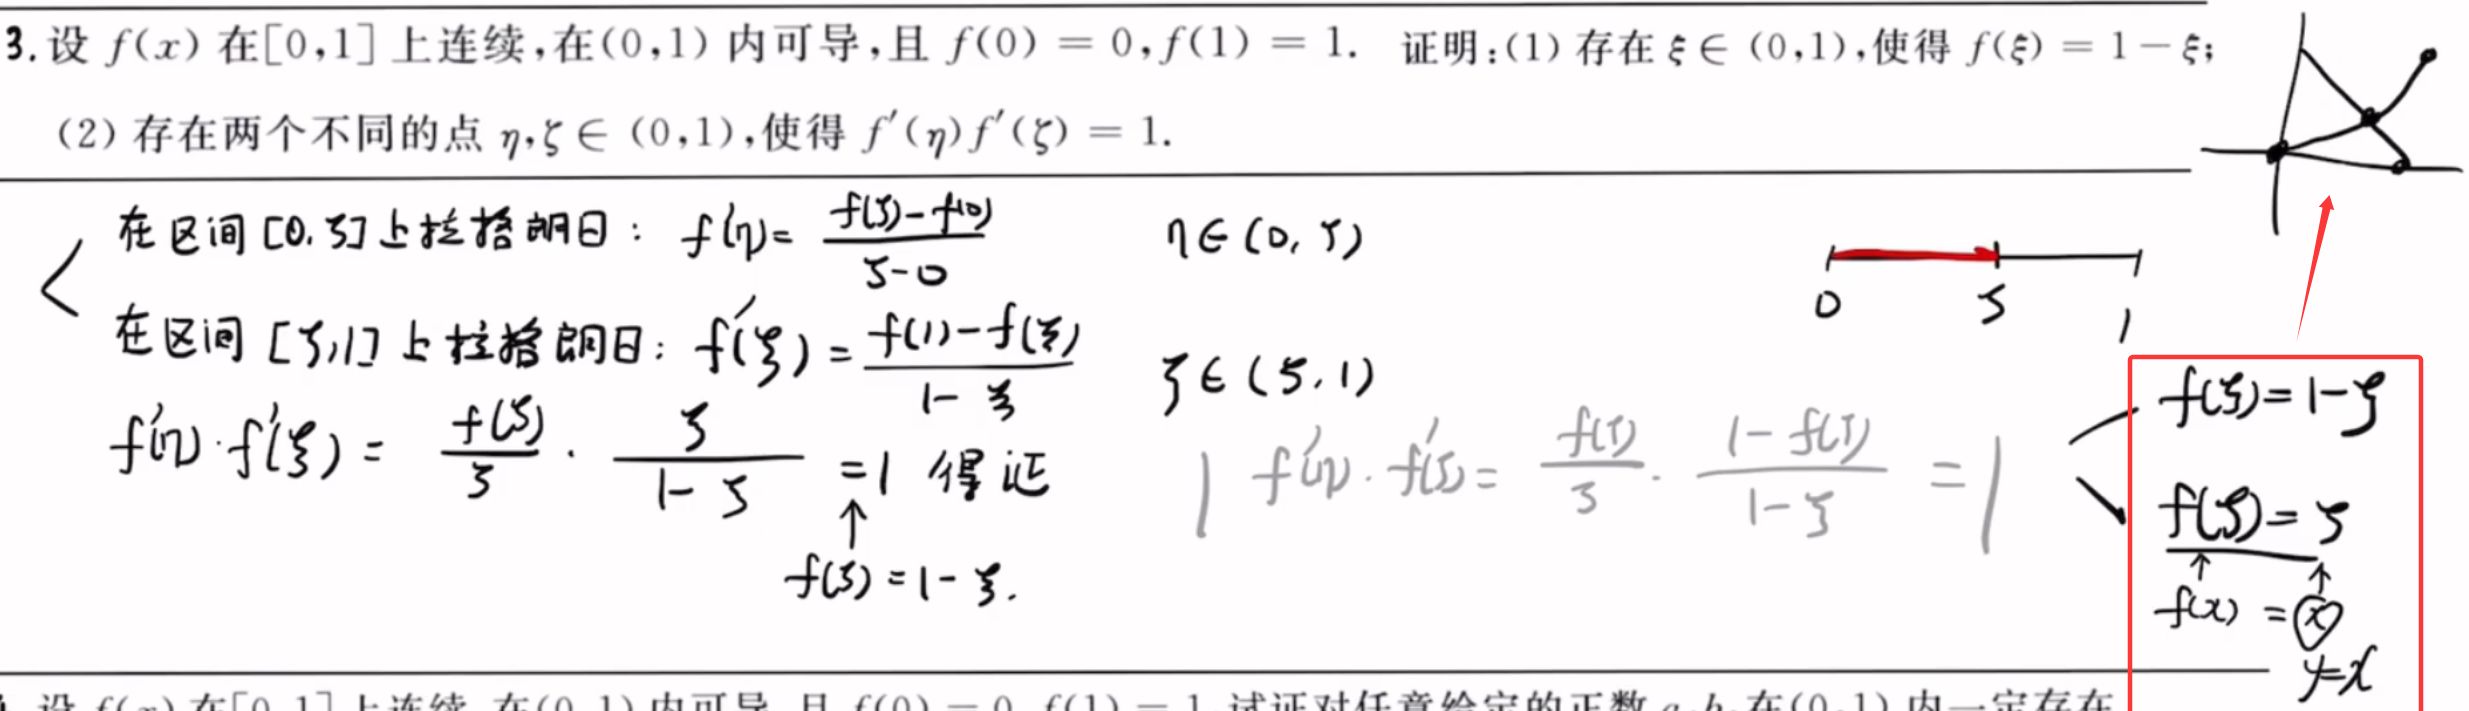 3. 设 f(x) 在[0,1] 上连续,在(0,1) 内可导,且 f(0) = 0,f(1) = 1. 证明:(1) 存在 ξ ∈ (0,1),使得 f(ξ) = 1 − ξ;
(2) 存在两个不同的点 η,ζ ∈ (0,1),使得 f′(η)f′(ζ) = 1.
在区间 [0, ξ] 上拉格朗日: f′(η) = (f(ξ) − f(0)) / (ξ − 0) η ∈ (0, ξ)
0 ξ 1
在区间 [ξ, 1] 上拉格朗日: f′(ζ) = (f(1) − f(ξ)) / (1 − ξ) ζ ∈ (ξ, 1)
f(ξ) = 1 − ξ
f′(η) · f′(ζ) = f(ξ)/ξ · ξ/(1 − ξ) = 1 得证
f′(η) · f′(ζ) = f(ξ)/ξ · (1 − f(ξ))/(1 − ξ) = 1
f(ξ) = ξ
↑ ↑
f(ξ) = 1 − ξ.
f(x) = x
y=x
设 f(x) 在[0,1] 上连续,在(0,1) 内可导,且 f(0) = 0,f(1) = 1,试证对任意给定的正数 a,b,在(0,1) 内一定存在